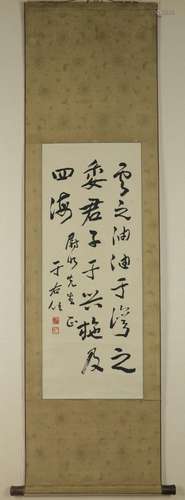 雲之油油于灣之
委君子于兴施及
四海
先生正
于右任